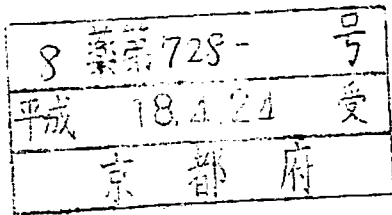 8 薬第728- 号
平成 18.4.24 受
京都府